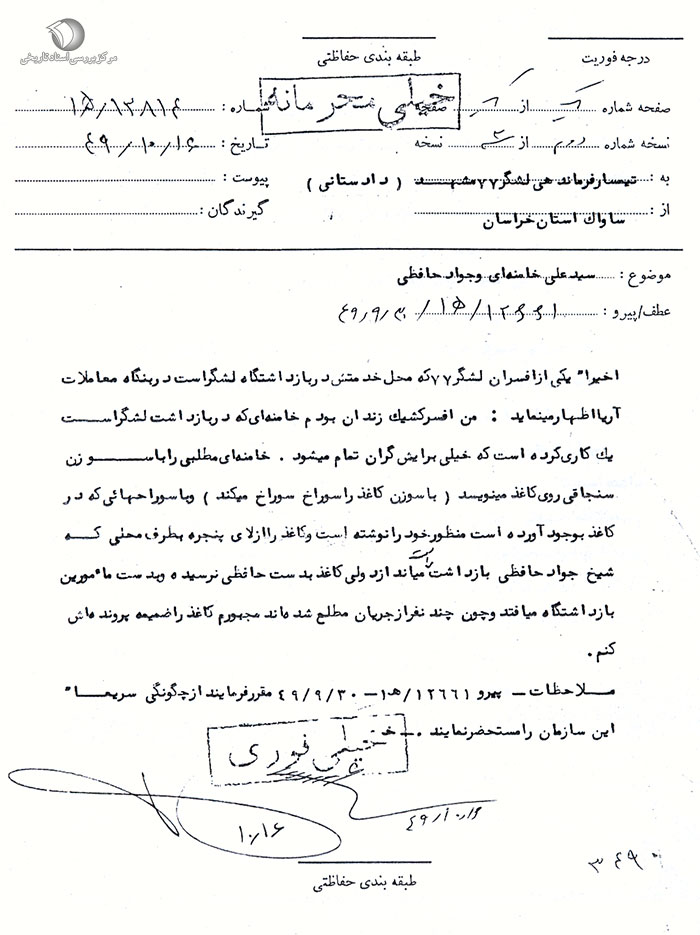 مرکز بررسی اسناد تاریخی
درجه فوریت
طبقه بندی حفاظتی
خیلی محرمانه
صفحه شماره یک از یک صفحه
شماره : ۱۵/۱۲۸۱۴
نسخه شماره دوم از ۳ نسخه
تاریخ : ۴۹/۱۰/۱۶
به : تیمسار فرماندهی لشگر ۷۷ مشهد ( دادستانی )
پیوست :
از : ساواک استان خراسان
گیرندگان :
موضوع : سید علی خامنه‌ای و جواد حافظی
عطف/پیرو : ۱۲۶۶۱/ ۱ﻫ/ ۴۹٫۹٫۳۰
اخیرا" یکی از افسران لشگر ۷۷ که محل خدمتش در بازداشتگاه لشگر است در بنگاه معاملات
آریا اظهار مینماید : من افسر کشیک زندان بودم خامنه‌ای که در بازداشت لشگر است
یک کاری کرده است که خیلی برایش گران تمام میشود . خامنه‌ای مطلبی را با سوزن
سنجاقی روی کاغذ مینویسد ( با سوزن کاغذ را سوراخ سوراخ میکند ) وبا سوراحهائی که در
کاغذ بوجود آورده است منظور خود را نوشته است و کاغذ را از لای پنجره بطرف محلی که
شیخ جواد حافظی بازداشت است میاندازد ولی کاغذ بدست حافظی نرسیده و بدست مأمورین
بازداشتگاه میافتد و چون چند نفر از جریان مطلع شده‌اند مجبورم کاغذ را ضمیمه پرونده‌اش
کنم .
ملاحظات – پیرو ۱۲۶۶۱/ﻫ۱–۴۹/۹/۳۰ مقرر فرمایند از چگونگی سریعا"
این سازمان را مستحضر نمایند .– خ
خیلی فوری
۱۰٫۱۶
طبقه بندی حفاظتی
۳۴۹۰